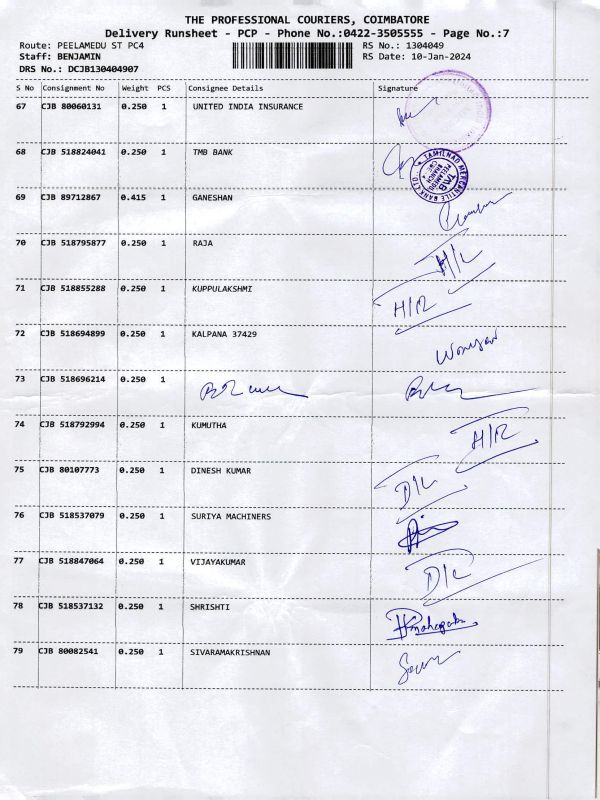 THE PROFESSIONAL COURIERS, COIMBATORE
Delivery Runsheet - PCP - Phone No.:0422-3505555 - Page No.:7
Route: PEELAMEDU ST PC4 RS No.: 1304049
Staff: BENJAMIN RS Date: 10-Jan-2024
DRS No.: DCJB130404907
S No Consignment No Weight PCS Consignee Details Signature
67 CJB 80060131 0.250 1 UNITED INDIA INSURANCE
68 CJB 518824041 0.250 1 TMB BANK
TAMILNAD MERCANTILE BANK LTD.
TMB
PEELAMEDU
BRANCH
69 CJB 89712867 0.415 1 GANESHAN
70 CJB 518795877 0.250 1 RAJA H/R
71 CJB 518855288 0.250 1 KUPPULAKSHMI H/R
72 CJB 518694899 0.250 1 KALPANA 37429
73 CJB 518696214 0.250 1
74 CJB 518792994 0.250 1 KUMUTHA H/R
75 CJB 80107773 0.250 1 DINESH KUMAR D/L
76 CJB 518537079 0.250 1 SURIYA MACHINERS
77 CJB 518847064 0.250 1 VIJAYAKUMAR D/L
78 CJB 518537132 0.250 1 SHRISHTI
79 CJB 80082541 0.250 1 SIVARAMAKRISHNAN